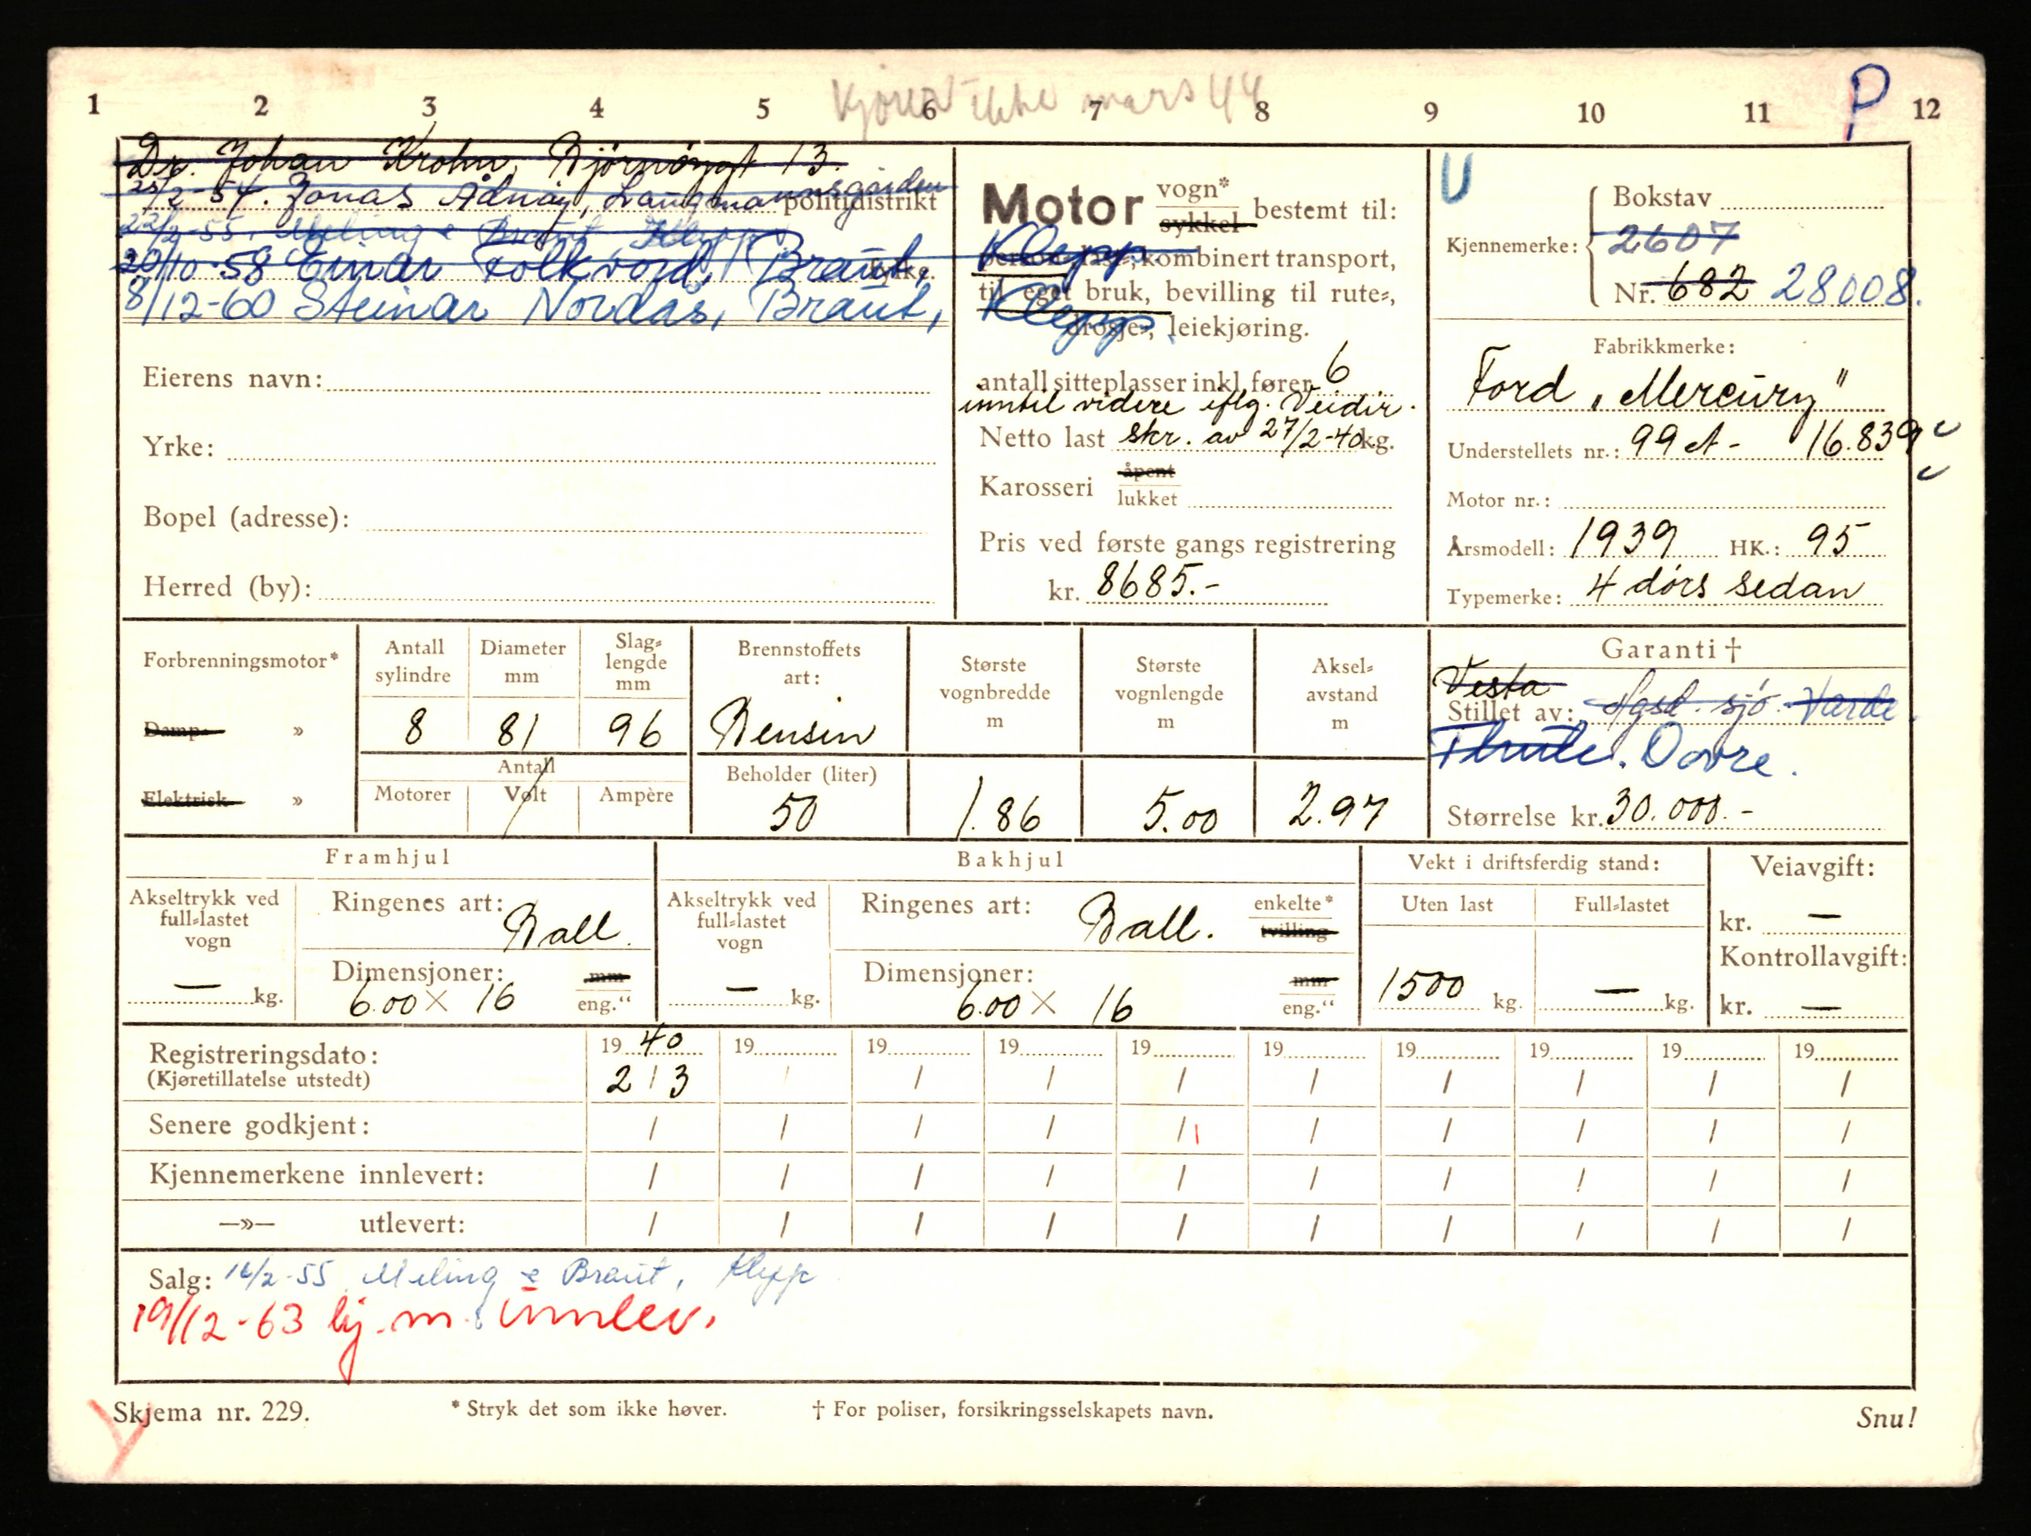 1 2 3 4 5 6 7 8 9 10 11 12
Kjører ikke mars 44
P
Dr. Johan Krohn, Bjørnøygt 13.
25/2-54. Jonas Ådnøy, Langmannsgården
politidistrikt
22/2-55. Meling & Braut Klepp
20/10-58 Einar Folkvord, Braut, Klepp
8/12-60 Steinar Nordås, Braut, Klepp.
Eierens navn:
Yrke:
Bopel (adresse):
Herred (by):
Motor vogn* sykkel bestemt til:
kombinert transport,
til eget bruk, bevilling til rute-,
drosje-, leiekjøring.
antall sitteplasser inkl. fører 6
inntil videre iflg. Veidir.
Netto last skr. av 27/2-40 kg.
Karosseri åpent lukket
Pris ved første gangs registrering
kr. 8685.-
U
Bokstav
Kjennemerke: 2607
Nr. 682 28008.
Fabrikkmerke:
Ford „Mercury"
Understellets nr.: 99 A - 16.839
Motor nr.:
Årsmodell: 1939 HK.: 95
Typemerke: 4 dørs sedan
Forbrenningsmotor*
Damp- »
Elektrisk »
Antall sylindre
Diameter mm
Slag-lengde mm
8 81 96
Antall
Motorer Volt Ampère
Brennstoffets art:
Bensin
Beholder (liter)
50
Største vognbredde m
1.86
Største vognlengde m
5.00
Aksel-avstand m
2.97
Garanti †
Vesta
Stillet av: Agd. sjø Varde.
Dovre.
Størrelse kr. 30.000.-
Framhjul
Akseltrykk ved full-lastet vogn
— kg.
Ringenes art: Ball.
Dimensjoner: mm
6.00 × 16 eng."
Bakhjul
Akseltrykk ved full-lastet vogn
— kg.
Ringenes art: Ball. enkelte* tvilling
Dimensjoner: mm
6.00 × 16 eng."
Vekt i driftsferdig stand:
Uten last Full-lastet
1500 kg. — kg.
Veiavgift:
kr. —
Kontrollavgift:
kr. —
Registreringsdato: 19 40 19 19 19 19 19 19 19 19 19
(Kjøretillatelse utstedt) 2 / 3 / / / / / / / / /
Senere godkjent: / / / / / / / / / /
Kjennemerkene innlevert: / / / / / / / / / /
—»— utlevert: / / / / / / / / / /
Salg: 16/2-55 Meling & Braut, Klepp
19/12-63 kj.m. innlev.
Skjema nr. 229. * Stryk det som ikke høver. † For poliser, forsikringsselskapets navn. Snu!